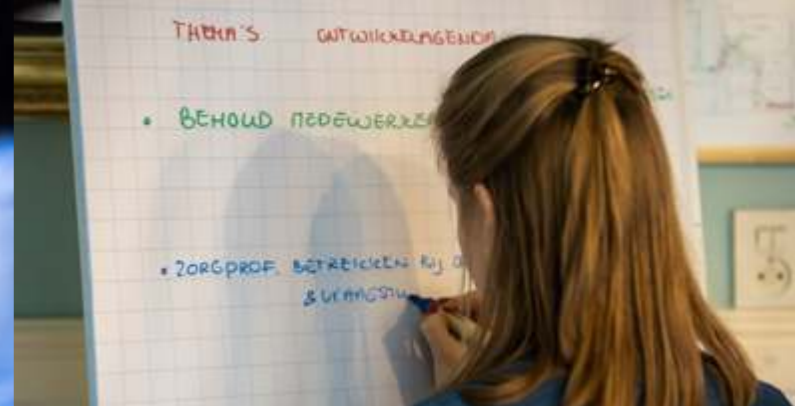 THEMA'S ONTWIKKELAGENDA
• BEHOUD MEDEWERKE
• ZORGPROF. BETREKKEN BIJ